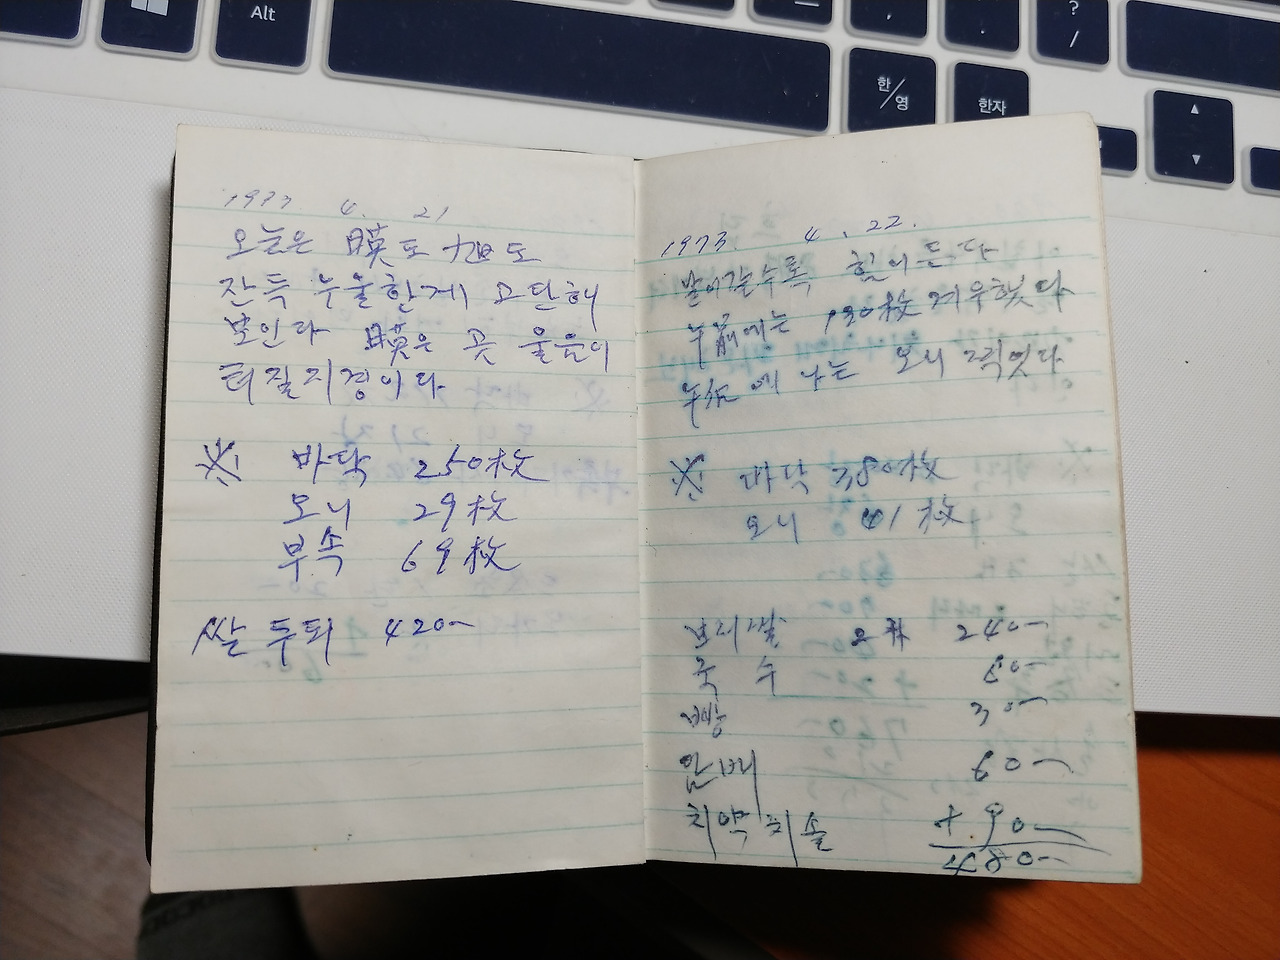 Alt
?
/
한/영
한자
1973 4. 21
오늘은 暎도 旭도
잔득 우울한게 고단해
보인다 暎은 곳 울음이
터질지경이다
※ 바닥 250枚
모니 29枚
부속 69枚
쌀 두되 420-
1973. 4. 22.
날이갈수록 힘이든다
午前에는 190枚 겨우햇다
午后에 나는 모니 그릿다
※ 바닥 380枚
모니 41枚
보리쌀 240-
국수 60-
빵 30-
담배 60-
치약 치솔 + 90-
480-